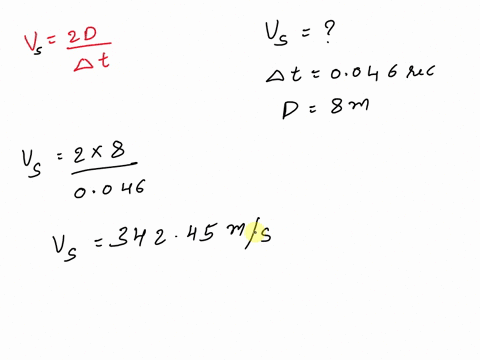 Vs = 2D / Δt
Vs = ?
Δt = 0.046 sec
D = 8m
Vs = 2 × 8 / 0.046
Vs = 342.45 m/s